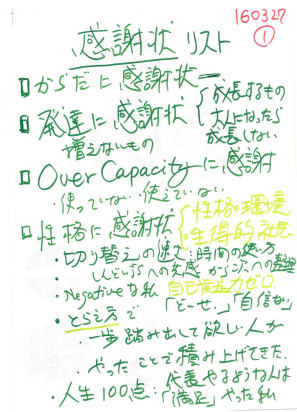 160327
①
感謝状リスト
からだに感謝状
発達に感謝状
成長するもの
大人になったら
成長しない
増えないもの
Over Capacityに感謝
・使っていない・使えていない
性格に感謝状
性格・環境
生得的・社会
・切り替えの速さ:時間の使い方
しんどい への共感 から 人への
・Negativeな私 自己肯定力ゼロ
・とらえ方で 「どーせ」「自信なし」
・一歩踏み出して欲しい人が
・やったことで積み上げてきた
・人生100点:代表やるような人は
「満足」やった私